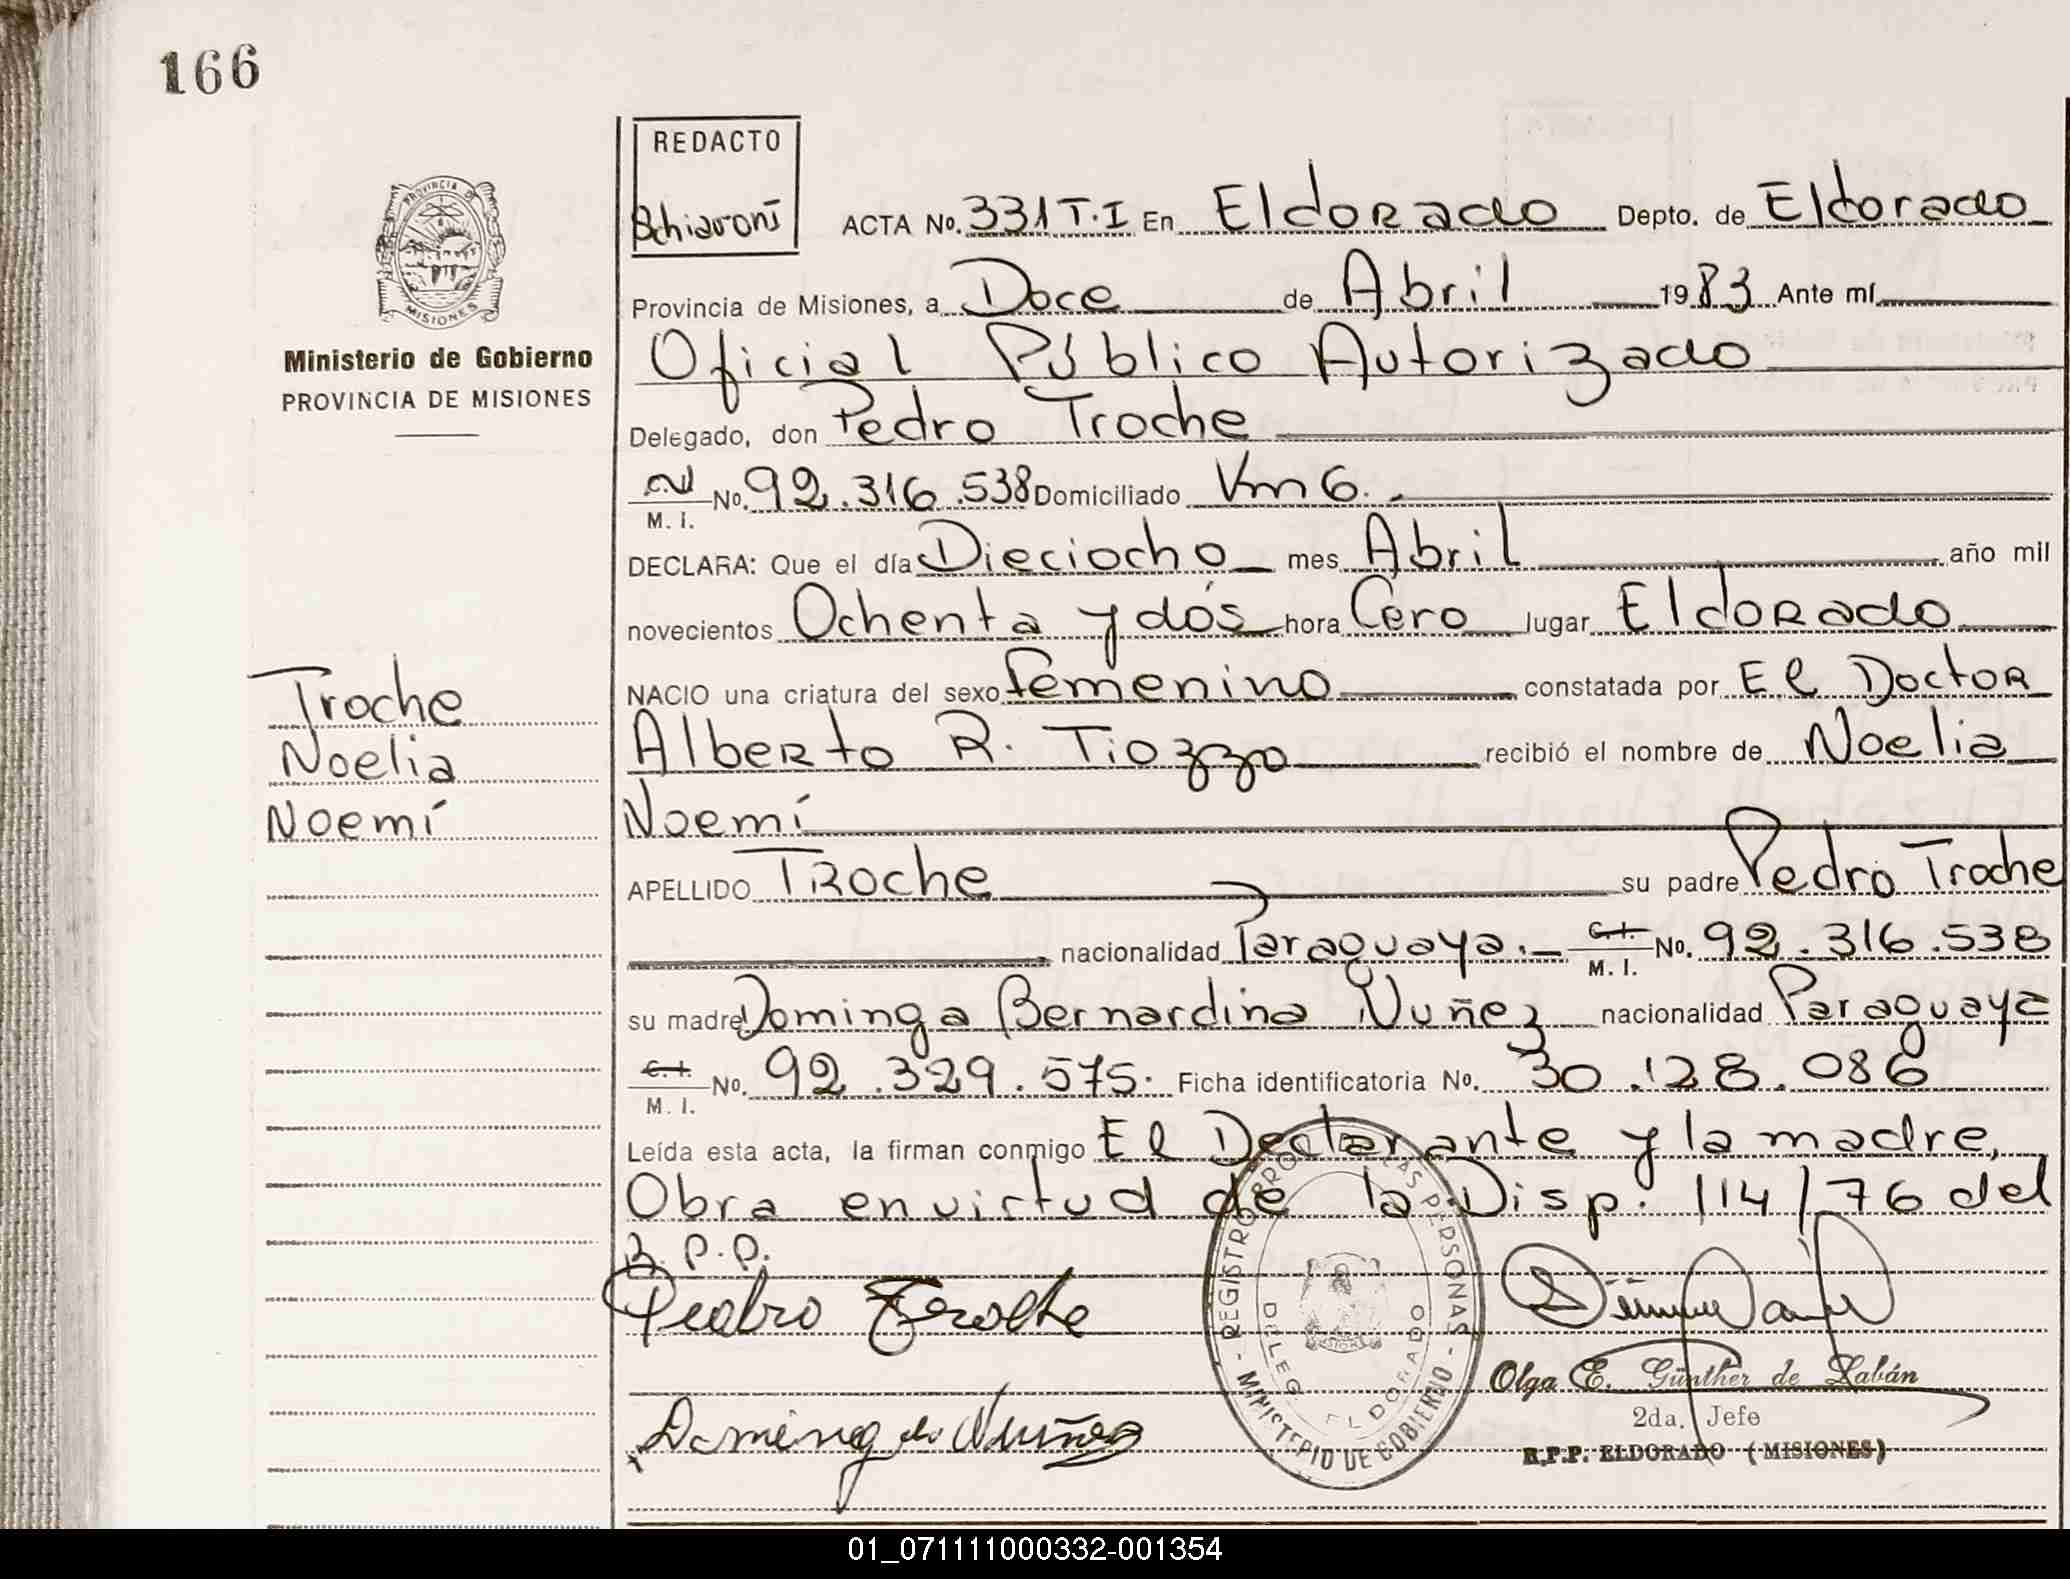 166
REDACTO
Schiavoni
ACTA No. 331 T.I En Eldorado Depto. de Eldorado
Provincia de Misiones, a Doce de Abril 1983 Ante mí
Oficial Público Autorizado
Delegado, don Pedro Troche
No. 92.316.538 Domiciliado Km 6.
M. I.
DECLARA: Que el día Dieciocho mes Abril año mil
novecientos Ochenta y dós hora Cero lugar Eldorado
NACIO una criatura del sexo femenino constatada por El Doctor
Alberto R. Tiozzo recibió el nombre de Noelia
Noemí
APELLIDO Troche su padre Pedro Troche
nacionalidad Paraguaya. C.I. No. 92.316.538
M. I.
su madre Dominga Bernardina Nuñez nacionalidad Paraguaya
C.I. No. 92.329.575. Ficha identificatoria No. 30.128.086
M. I.
Leída esta acta, la firman conmigo El Declarante y la madre,
Obra en virtud de la Disp. 114/76 del
R.P.P.
Pedro Troche
Dominga Nuñez
PROVINCIA DE
MISIONES
Ministerio de Gobierno
PROVINCIA DE MISIONES
Troche
Noelia
Noemí
REGISTRO PROV. DE LAS PERSONAS
- MINISTERIO DE GOBIERNO -
DELEG. ELDORADO
Olga E. Günther de Labán
2da. Jefe
R.P.P. ELDORADO (MISIONES)
01_071111000332-001354